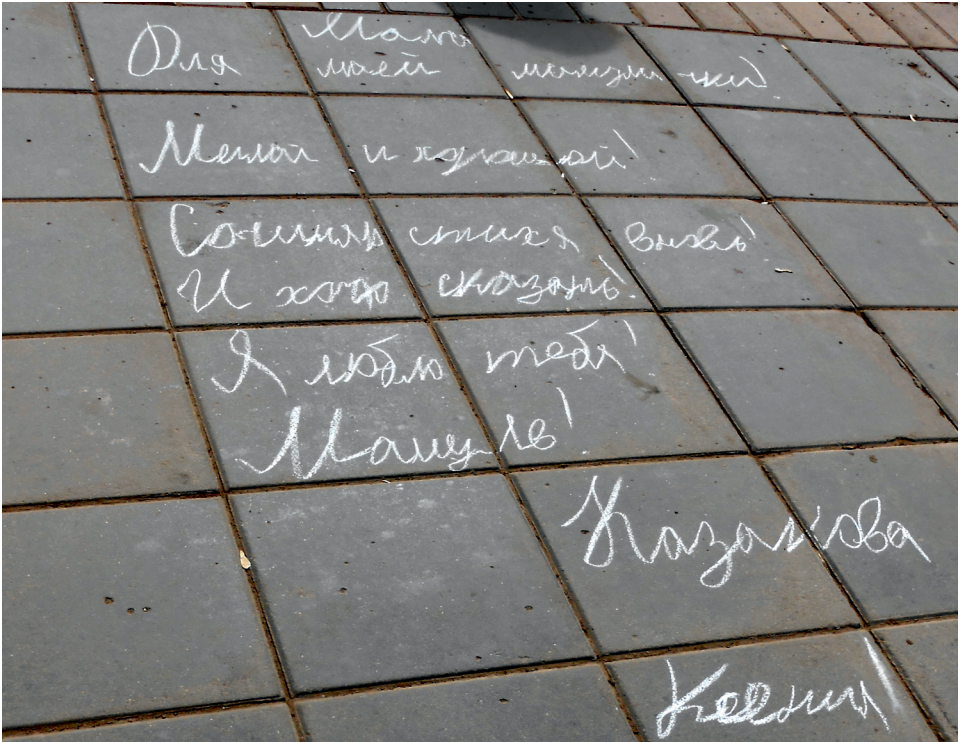 Для моей мамули-чки
Милой и хорошой!
Сочиняю стихи вновь!
И хочу сказать!
Я люблю тебя!
Мамуль!
Казакова
Ксения!